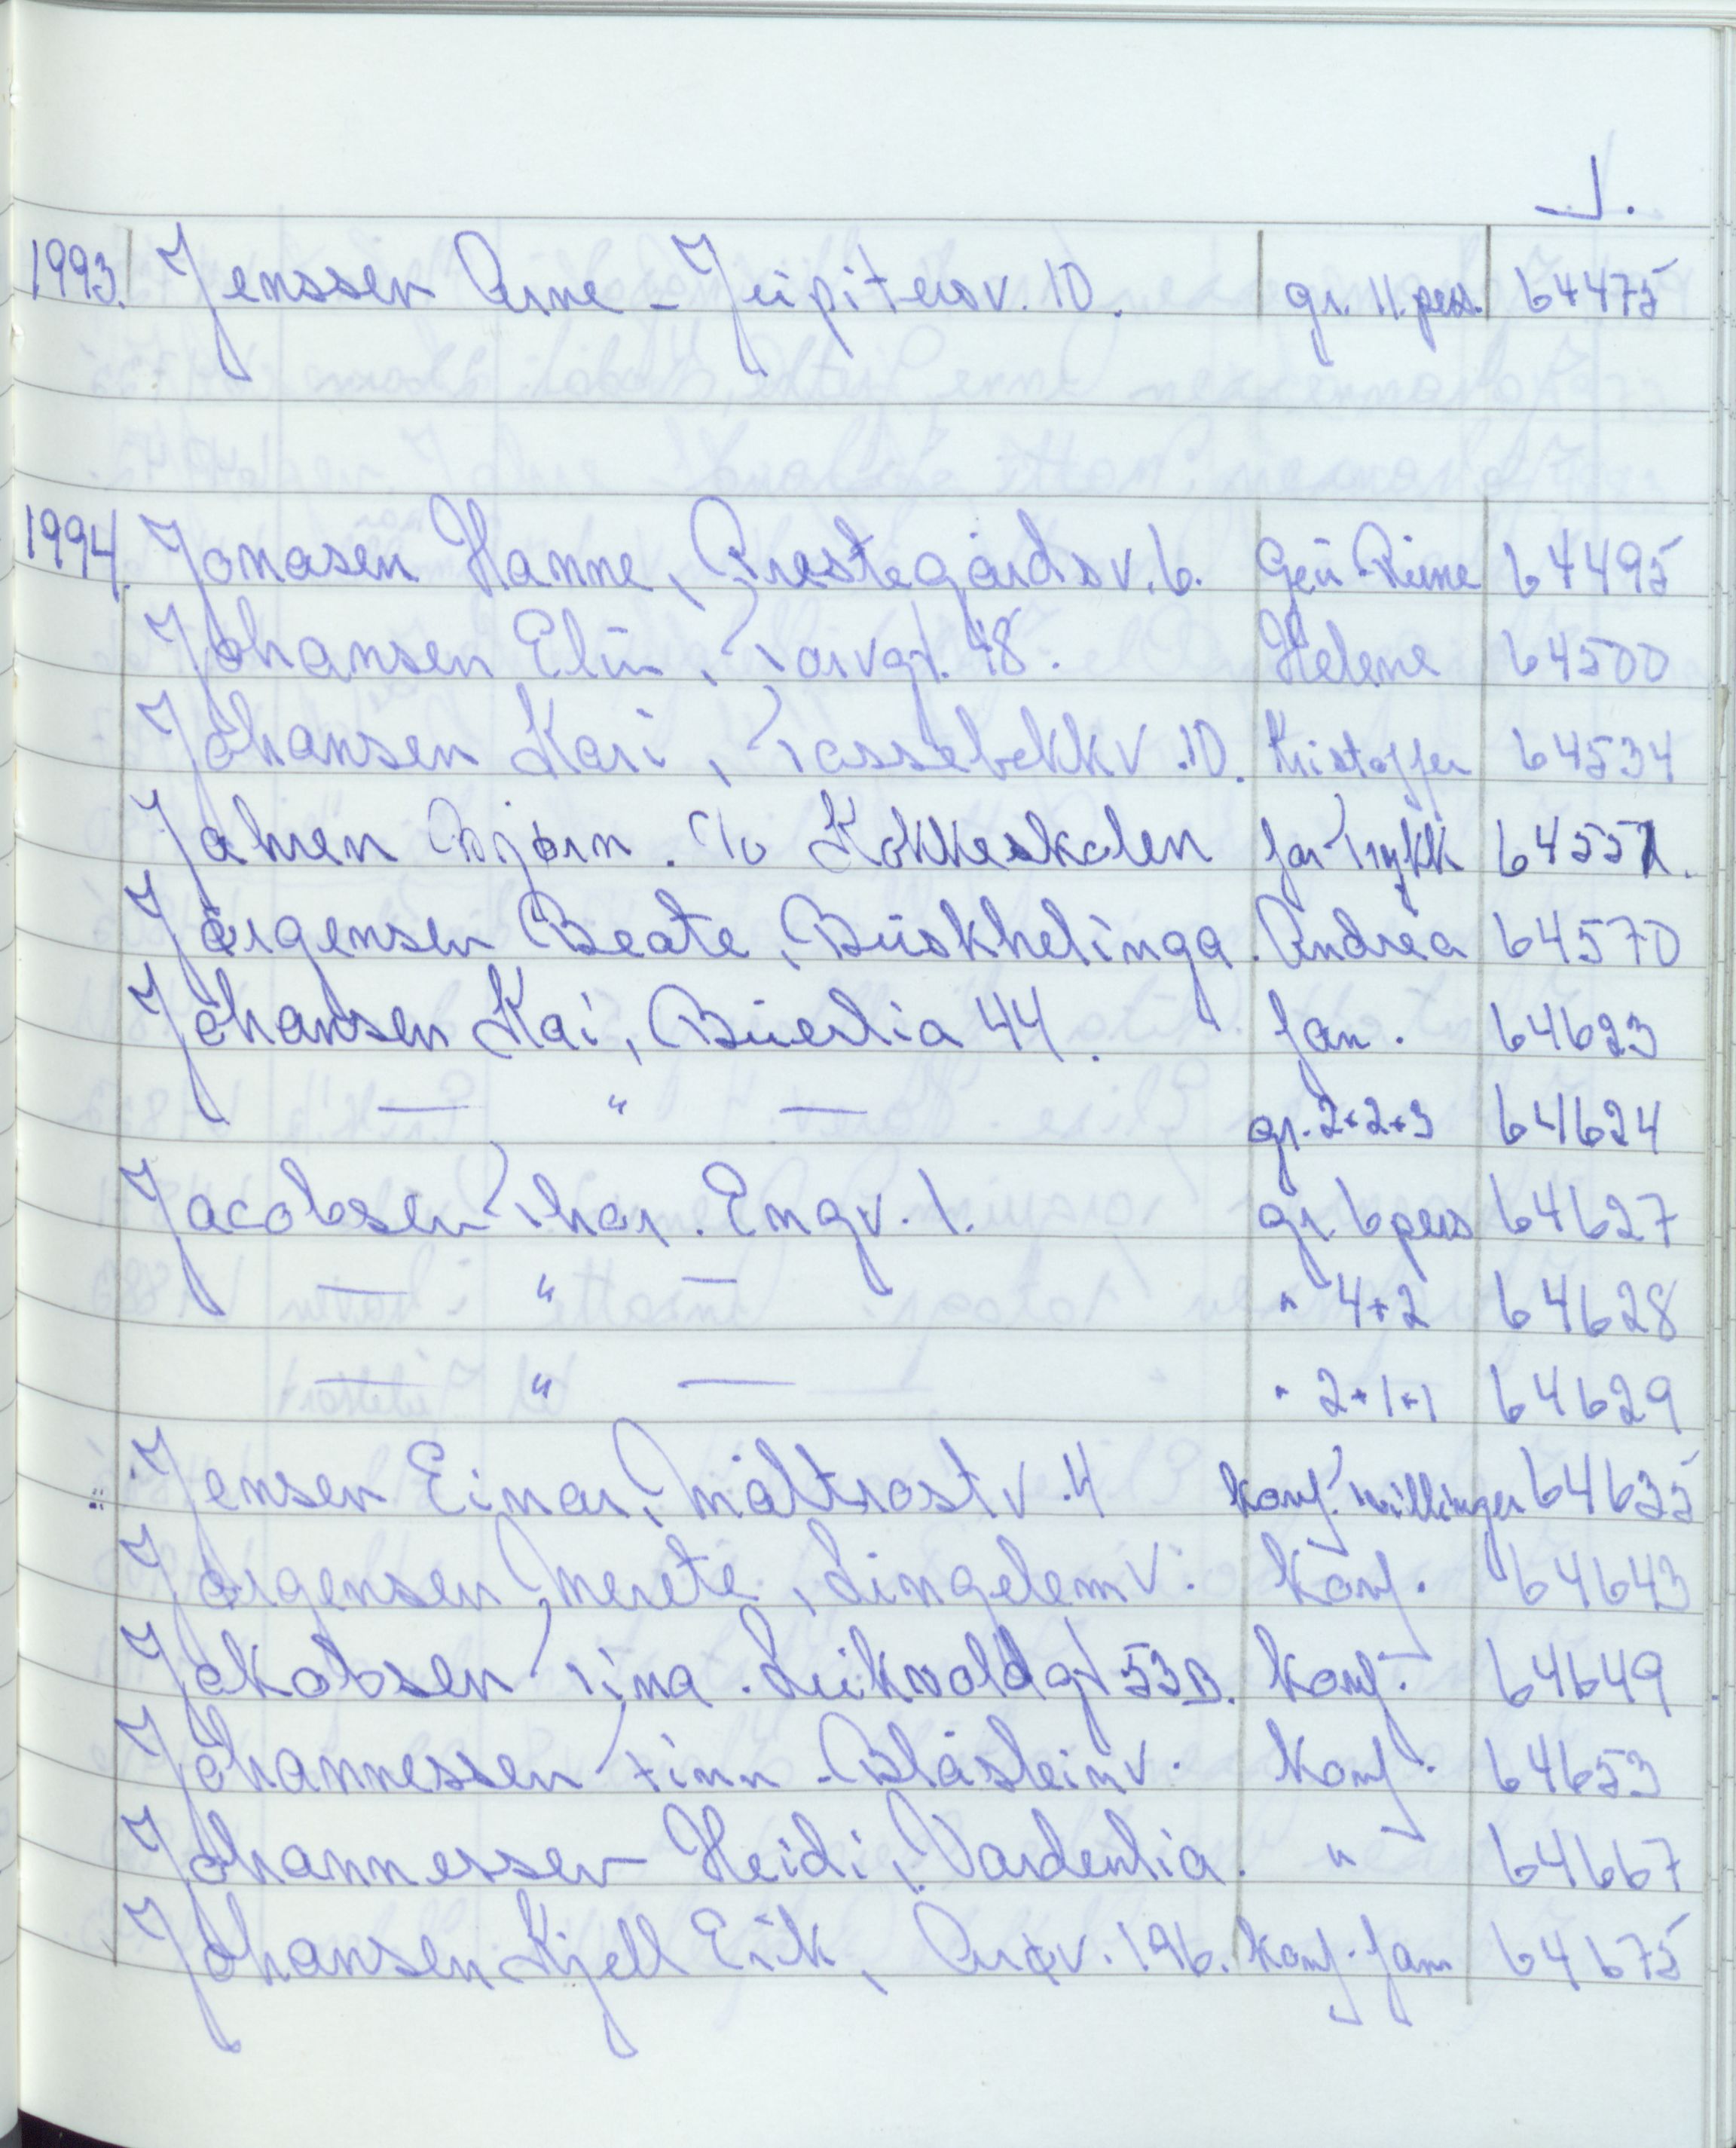 J.
1993. Jenssen Arne - Jupitersv. 10. gr. 11. pers. 64475
1994. Jonasen Hanne, Prestegårdsv. 6. Geir-Rune 64495
Johansen Elin, Torvgt. 48. Helene 64500
Johansen Kari, Tassebekkv. 10. Kristoffer 64534
Jahren Bjørn. c/o Kokkeskolen far Trykk 64551.
Jørgensen Beate, Buskhelinga. Andrea 64570
Johansen Kai, Buerlia 44. fam. 64623
— " — gr. 2+2+3 64624
Jacobsen Thor. Engv. 1. gr. 6 pers 64627
— " — " 4+2 64628
— " — " 2+1+1 64629
Jensen Einar, Måltrostv. 4 konf. tvillinger 64635
Jørgensen Merete, Lingelemv. Konf. 64643
Jakobsen Tina. Leikvoldgt 53B. Konf. 64649
Johannessen Finn - Blåsteinv. Konf. 64653
Johannessen Heidi, Vardenlia. " 64667
Johansen Kjell Erik, Arøv. 196. Konf. fam 64675